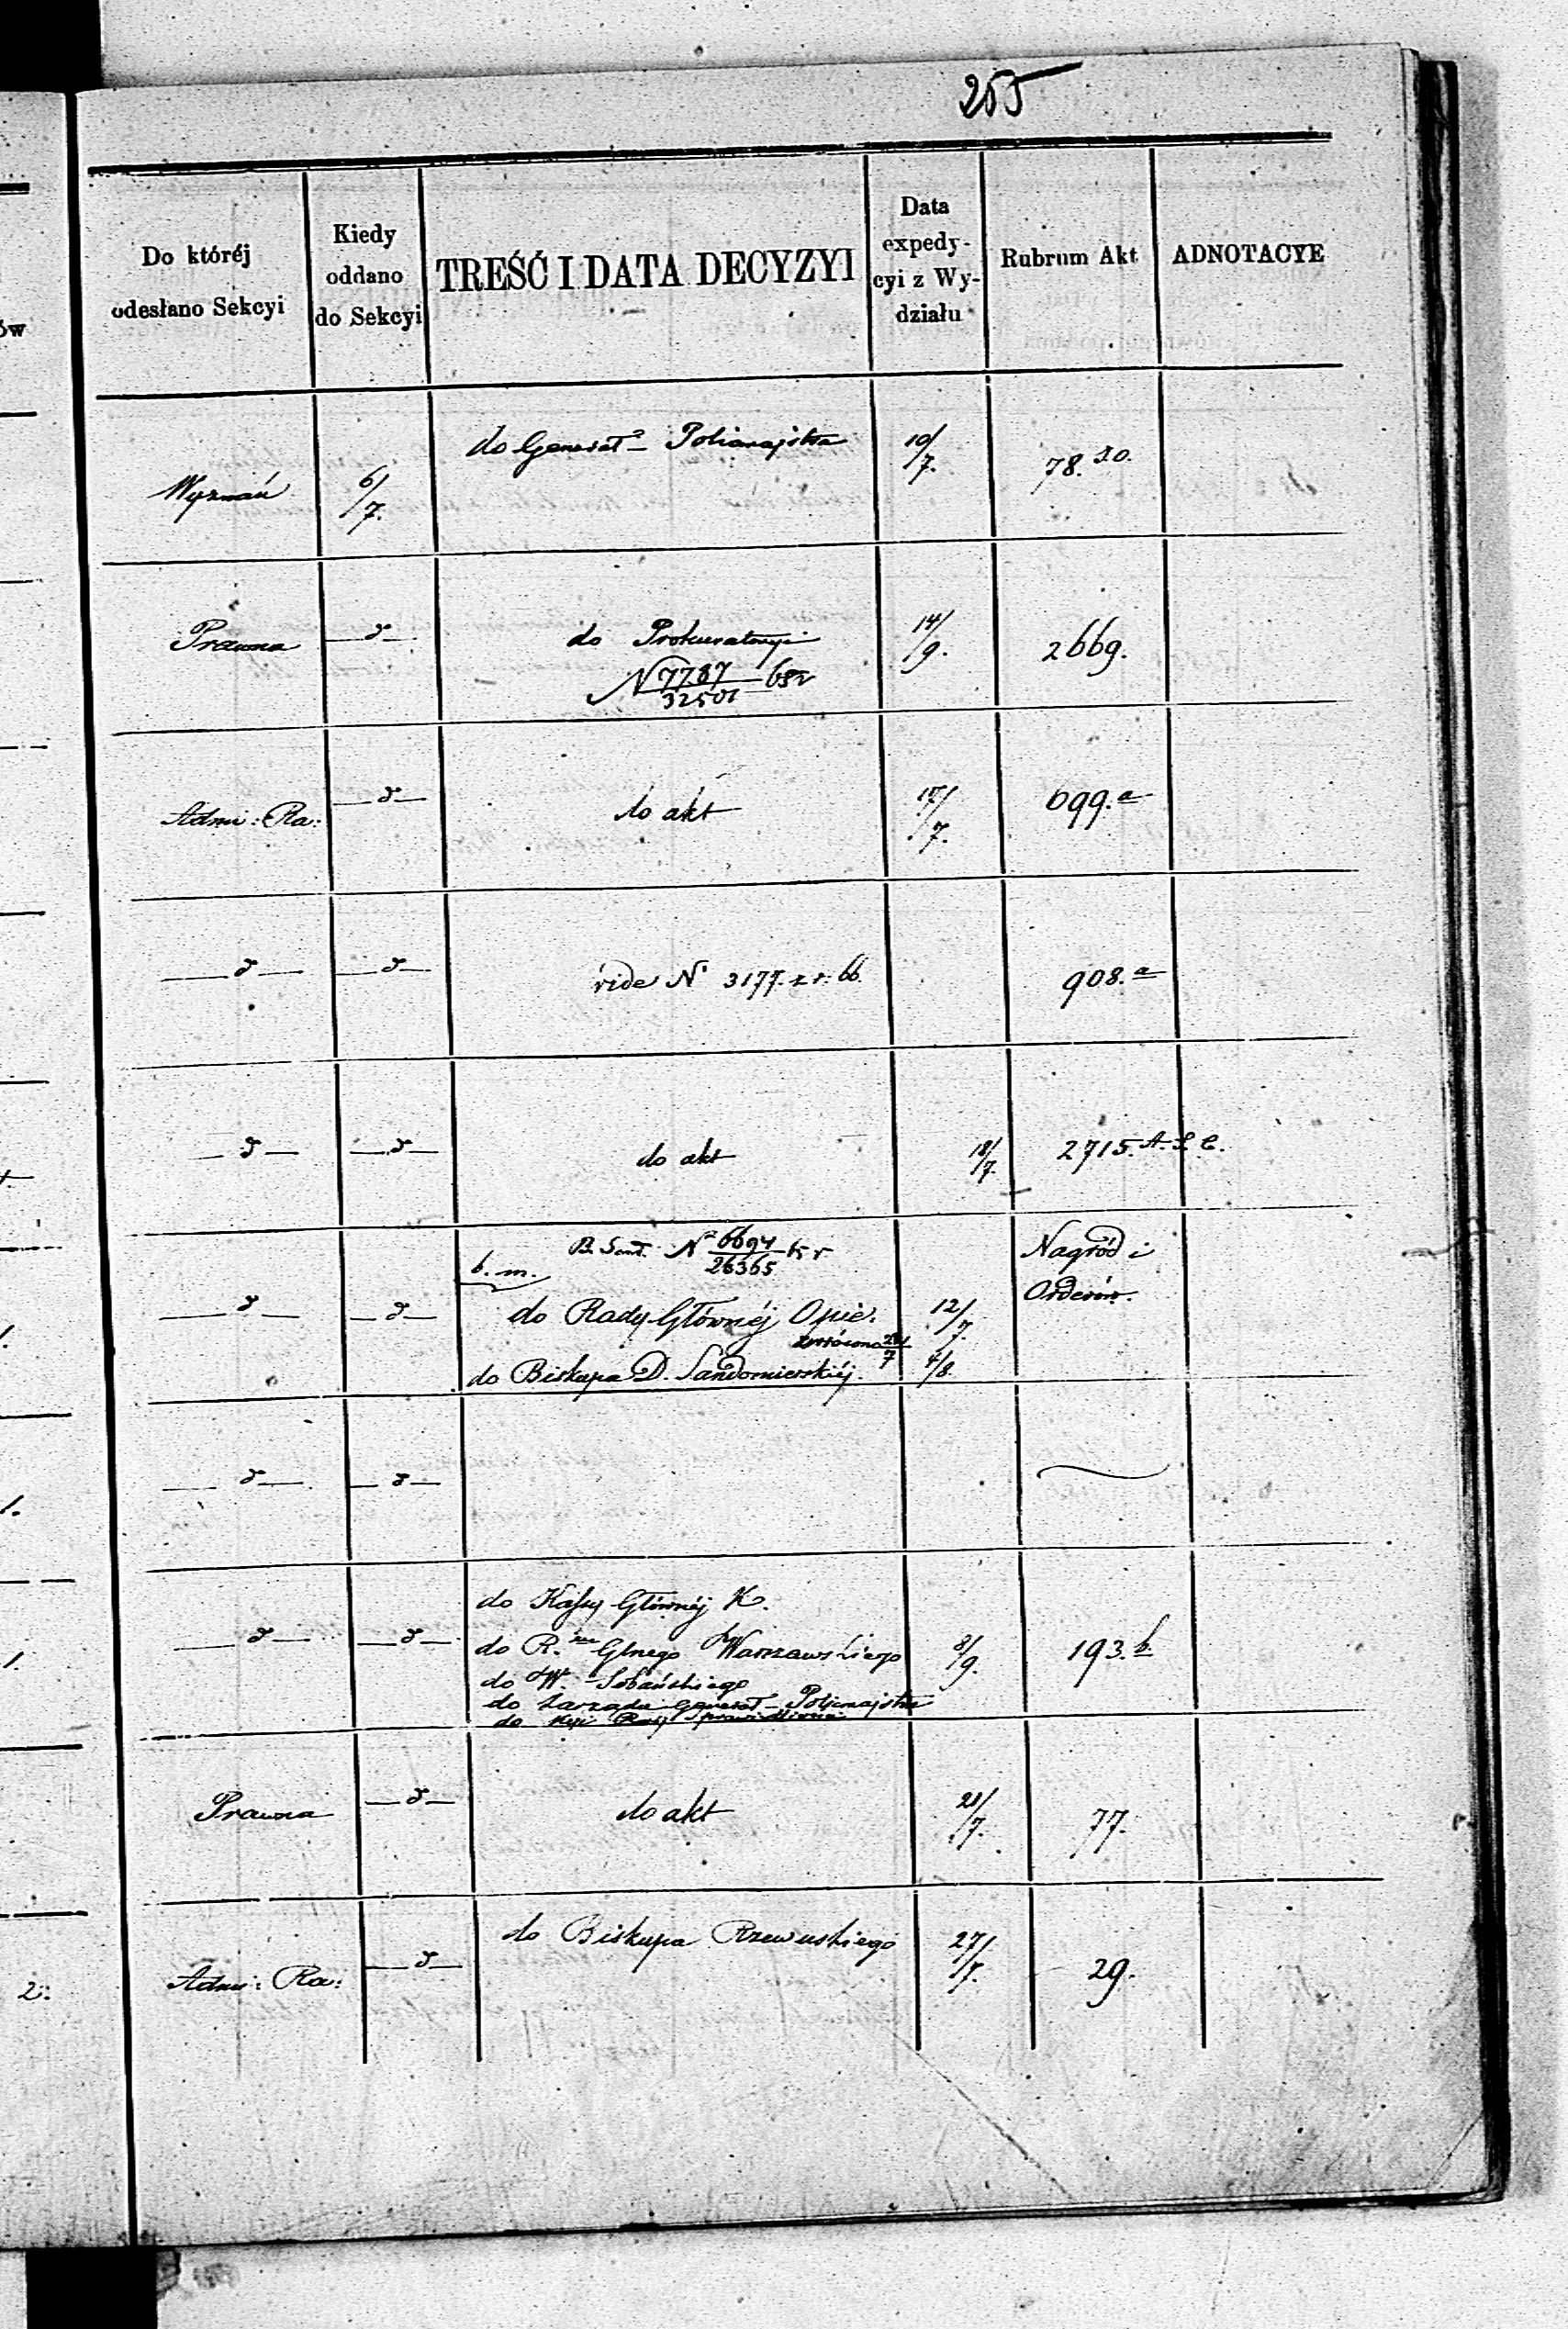 255
Do któréj
odesłano Sekcyi
Kiedy
oddano
do Sekcyi
TREŚĆ I DATA DECYZYI
Data
expedy-
cyi z Wy-
działu
Rubrum Akt
ADNOTACYE
Wyznań
6/7.
do Generał- Policmajstra
10/7.
78.
Prawna
—d—
do Prokuratoryi
N 7787/32501
14/9.
2669.
Adm: Ra:
—d—
do akt
17/7.
699.a
—d—
—d—
vide No 3177. z r. 66.
908.a
—d—
—d—
do akt
18/7.
2715.
—d—
—d—
b. m.
No 6694/26365
do Rady Głównéj Opie.
12/7
zwrócono
do Biskupa D. Sandomierskiéj.
4/8.
Nagród i
Orderów.
—d—
—d—
—d—
—d—
do Kassy Głównéj K.
do R. Glnego Warszawskiego
do W. Sobańskiego
do Zarządu Generał-Policmajstra
do
8/9.
193.b.
Prawna
—d—
do akt
21/7.
77.
Adm: Ra:
—d—
do Biskupa Rzewuskiego
27/7.
29.
ów
2.